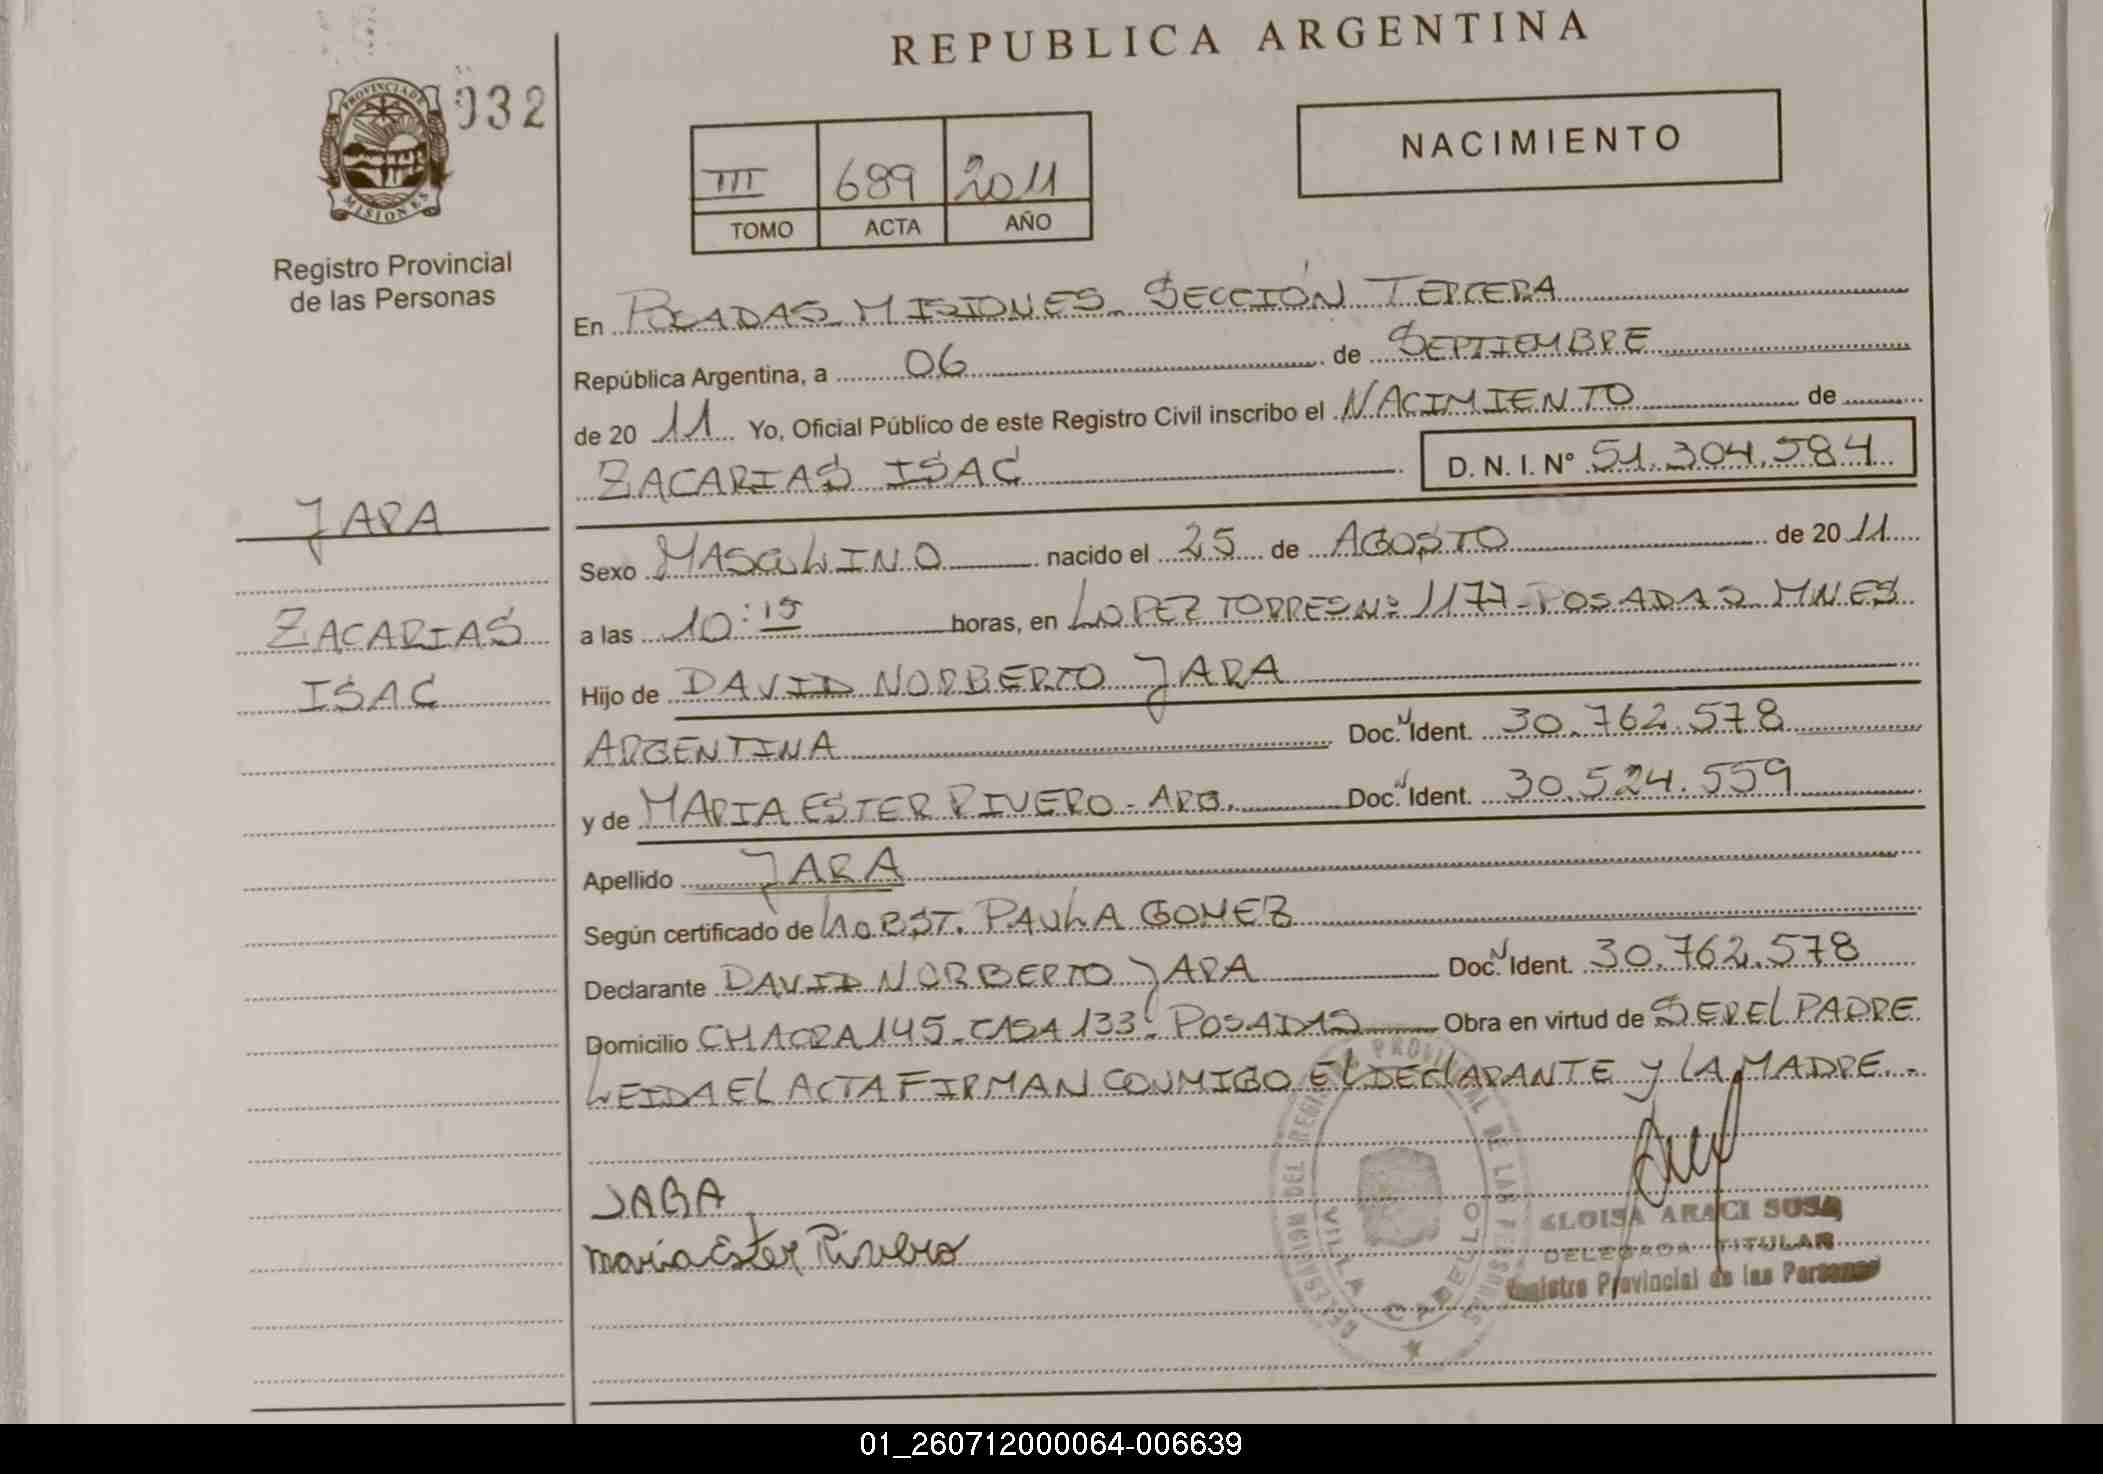 REPUBLICA ARGENTINA
PROVINCIA DE
MISIONES
032
Registro Provincial
de las Personas
III 689 2011
TOMO ACTA AÑO
NACIMIENTO
En POSADAS MISIONES. SECCIÓN TERCERA
República Argentina, a 06 de SEPTIEMBRE
de 20 11 Yo, Oficial Público de este Registro Civil inscribo el NACIMIENTO de
ZACARIAS ISAC D. N. I. Nº 51.304.584
JARA
ZACARIAS
ISAC
Sexo MASCULINO nacido el 25 de AGOSTO de 20 11
a las 10:15 horas, en LOPEZ TORRES Nº 1177-POSADAS MNES
Hijo de DAVID NORBERTO JARA
ARGENTINA Doc. N Ident. 30.762.578
y de MARIA ESTER RIVERO - ARG. Doc. N Ident. 30.524.559
Apellido JARA
Según certificado de LA OBST. PAULA GOMEZ
Declarante DAVID NORBERTO JARA Doc. N Ident. 30.762.578
Domicilio CHACRA 145-CASA 133- POSADAS Obra en virtud de SER EL PADRE
LEIDA EL ACTA FIRMAN CONMIGO EL DECLARANTE Y LA MADRE.-
JARA
Maria Ester Rivero
DELEGACION DEL REGISTRO PROVINCIAL DE LAS PERSONAS
VILLA CABELLO
ELOISA ARACI SUSA
DELEGADA TITULAR
Registro Provincial de las Personas
01_260712000064-006639